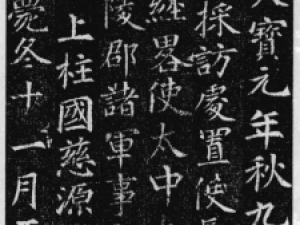 寶元年秋九
採訪處置使
經畧使太中
陵郡諸軍事
上柱國慈源
薨冬十一月